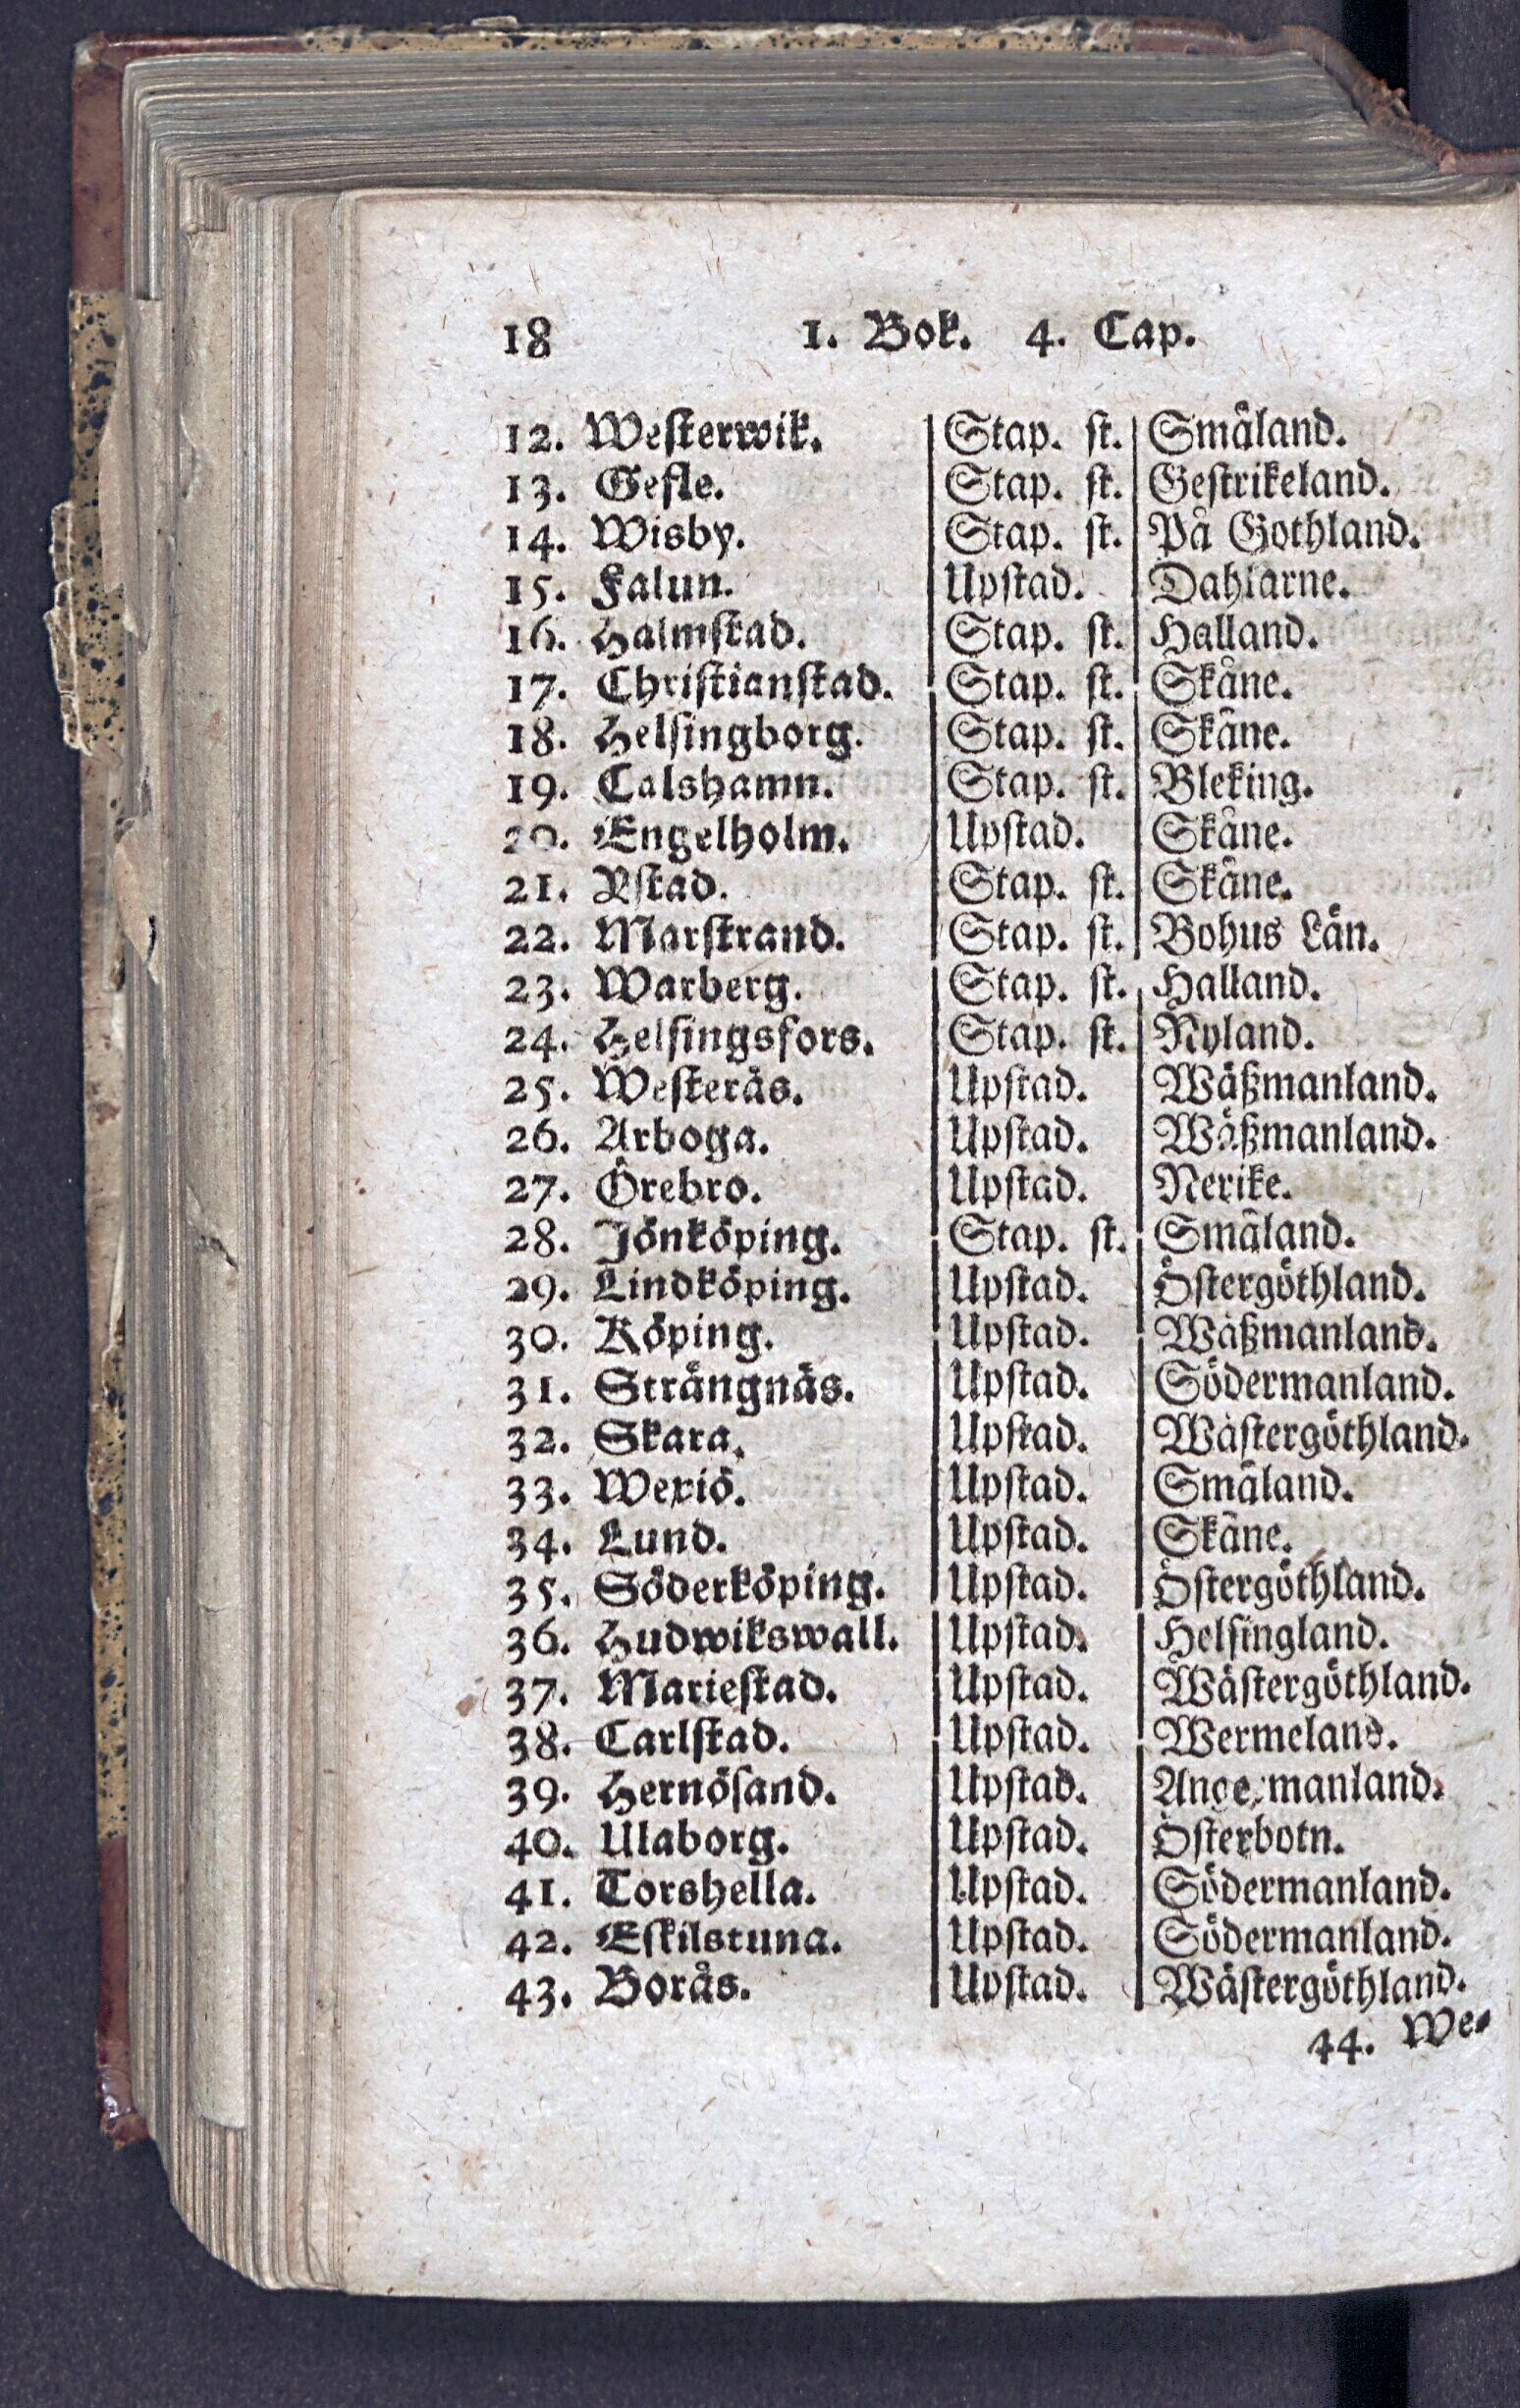 18 1. Bok. 4. Cap.
12. Westerwik. Stap. st. Småland.
13. Gefle. Stap. st. Gestrikeland.
14. Wisby. Stap. st. På Gothland.
15. Falun. Upstad. Dahlarne.
16. Halmstad. Stap. st. Halland.
17. Christianstad. Stap. st. Skåne.
18. Helsingborg. Stap. st. Skåne.
19. Calshamn. Stap. st. Bleking.
20. Engelholm. Upstad. Skåne.
21. Ystad. Stap. st. Skåne.
22. Marstrand. Stap. st. Bohus Län.
23. Warberg. Stap. st. Halland.
24. Helsingsfors. Stap. st. Nyland.
25. Westerås. Upstad. Wäßmanland.
26. Arboga. Upstad. Wäßmanland.
27. Örebro. Upstad. Nerike.
28. Jönköping. Stap. st. Småland.
29. Lindköping. Upstad. Östergöthland.
30. Köping. Upstad. Wäßmanland.
31. Strängnäs. Upstad. Södermanland.
32. Skara. Upstad. Wästergöthland.
33. Wexiö. Upstad. Småland.
34. Lund. Upstad. Skåne.
35. Söderköping. Upstad. Östergöthland.
36. Hudwikswall. Upstad. Helsingland.
37. Mariestad. Upstad. Wästergöthland.
38. Carlstad. Upstad. Wermeland.
39. Hernösand. Upstad. Angermanland.
40. Ulaborg. Upstad. Österbotn.
41. Torshella. Upstad. Södermanland.
42. Eskilstuna. Upstad. Södermanland.
43. Borås. Upstad. Wästergöthland.
44. We-